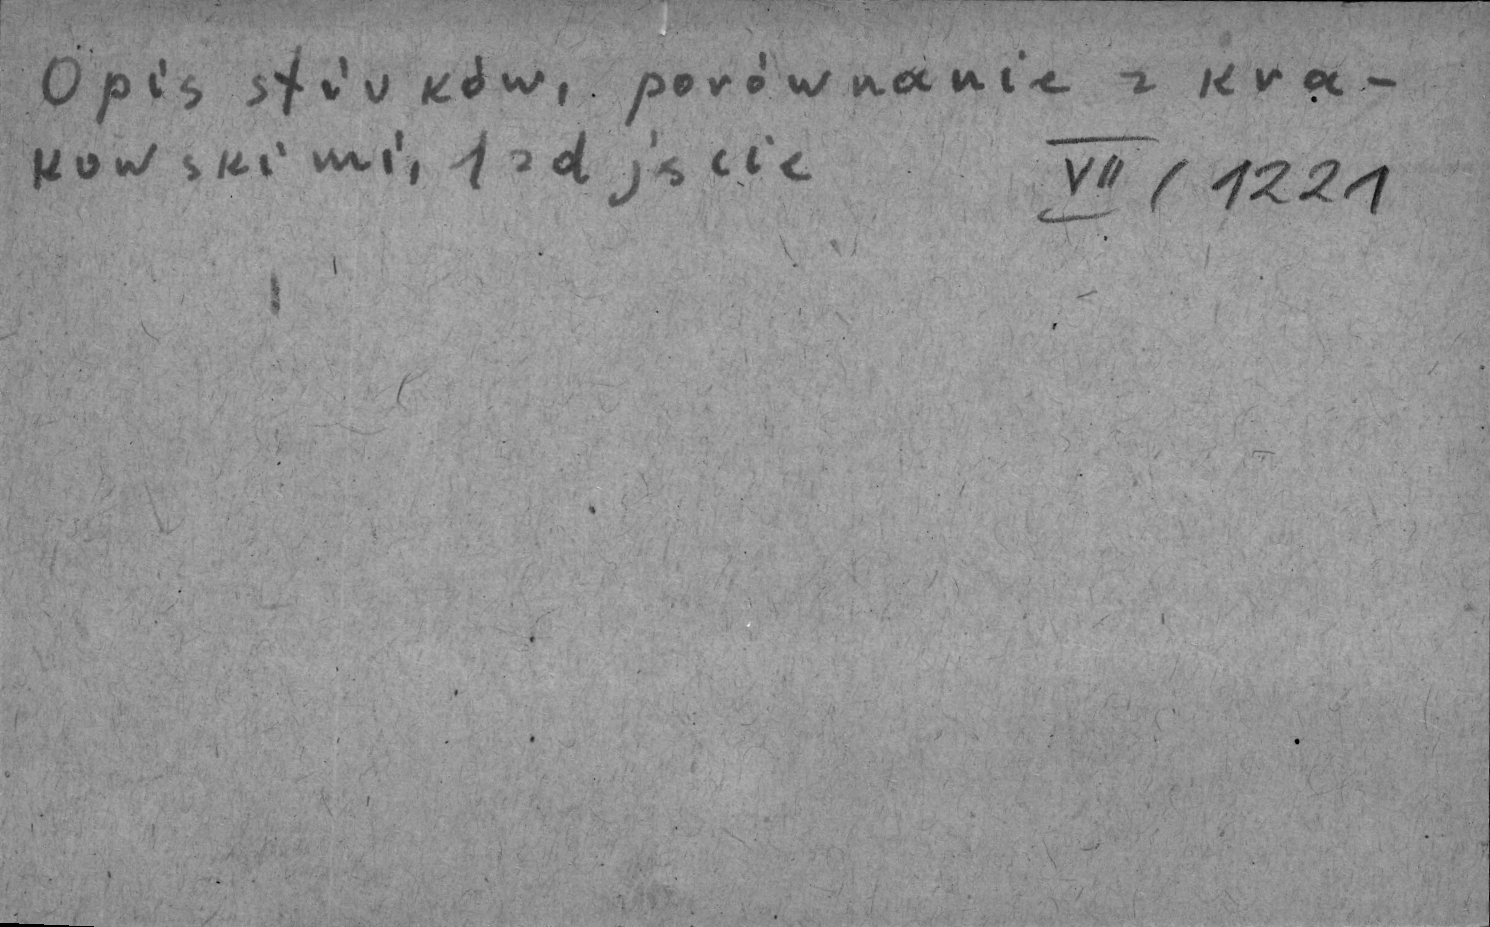 Opis stiuków, porównanie z kra-
kowskimi, 1 zdjście
VII / 1221